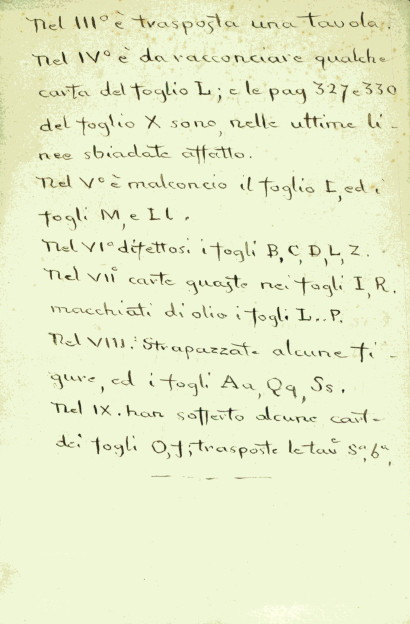 Nel III° è trasposta una tavola.
Nel IV° è da racconciare qualche
carta del foglio L; e le pag 327 e 330
del foglio X sono, nelle ultime li-
nee sbiadate affatto.
Nel V° è malconcio il foglio I, ed i
fogli M, e Ll.
Nel VI° difettosi i fogli B, C, D, L, Z.
Nel VII° carte guaste nei fogli I, R.
macchiati di olio i fogli L..P.
Nel VIII. Strapazzate alcune fi-
gure, ed i fogli Aa, Qq, Ss.
Nel IX. han sofferto alcune cart-
dei fogli O, f; trasposte le tav 5ª, 6ª,